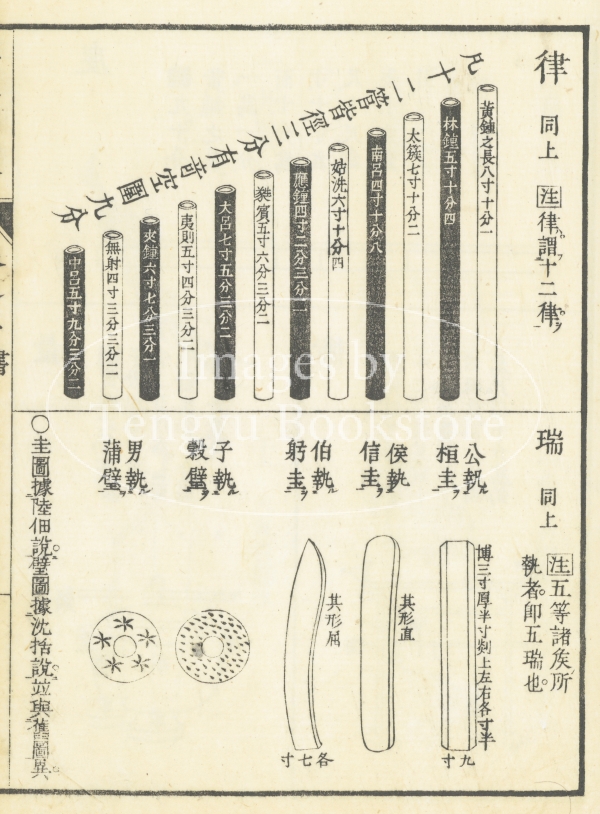 律 同上 注律謂十二律
凡十二管皆徑三分有音空圍九分
黃鐘之長八寸十分一
林鐘五寸十分四
太簇七寸十分二
南呂四寸十分八
姑洗六寸十分四
應鐘四寸二分三分二
蕤賓五寸六分三分二
大呂七寸五分三分二
夷則五寸四分三分二
夾鐘六寸七分三分一
無射四寸三分三分二
中呂五寸九分三分二
瑞 同上 注五等諸侯所
執者即五瑞也
公執ル
桓圭ヲ
侯執ル
信圭ヲ
伯執ル
躬圭ヲ
子執ル
穀璧ヲ
男執ル
蒲璧ヲ
博三寸厚半寸剡上左右各寸半
九寸
其形直
其形屈
各七寸
○圭圖據陸佃說璧圖據沈括說並與舊圖異
書
Images by
Tengyu Bookstore